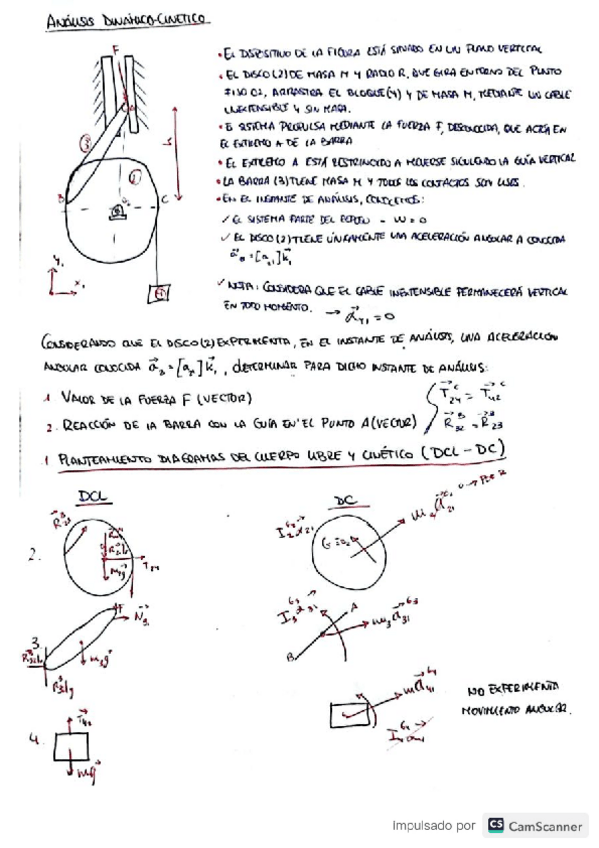 ANÁLISIS DINÁMICO-CINÉTICO
• EL DISPOSITIVO DE LA FIGURA ESTÁ SITUADO EN UN PLANO VERTICAL
• EL DISCO (2) DE MASA M Y RADIO R, QUE GIRA EN TORNO DEL PUNTO
FIJO O2, ARRASTRA EL BLOQUE (4) Y DE MASA M, MEDIANTE UN CABLE
INEXTENSIBLE Y SIN MASA.
• EL SISTEMA PROPULSA MEDIANTE LA FUERZA F, DESCONOCIDA, QUE ACTÚA EN
EL EXTREMO A DE LA BARRA
• EL EXTREMO A ESTÁ RESTRINGIDO A MOVERSE SIGUIENDO LA GUÍA VERTICAL
• LA BARRA (3) TIENE MASA M Y TODOS LOS CONTACTOS SON LISOS.
• EN EL INSTANTE DE ANÁLISIS, CONOCEMOS:
✓ EL SISTEMA PARTE DEL REPOSO - W = 0
✓ EL DISCO (2) TIENE ÚNICAMENTE UNA ACELERACIÓN ANGULAR A CONOCIDA
✓ NOTA: CONSIDERA QUE EL CABLE INEXTENSIBLE PERMANECERÁ VERTICAL
EN TODO MOMENTO.
F
3
2
B
C
Y1
X1
CONSIDERANDO QUE EL DISCO (2) EXPERIMENTA, EN EL INSTANTE DE ANÁLISIS, UNA ACELERACIÓN
ANGULAR CONOCIDA, DETERMINAR PARA DICHO INSTANTE DE ANÁLISIS:
1 VALOR DE LA FUERZA F (VECTOR)
2. REACCIÓN DE LA BARRA CON LA GUÍA EN EL PUNTO A (VECTOR)
1 PLANTEAMIENTO DIAGRAMAS DEL CUERPO LIBRE Y CINÉTICO (DCL - DC)
DCL
DC
2.
3.
A
B
4.
mg
NO EXPERIMENTA
MOVIMIENTO ANGULAR.
Impulsado por CS CamScanner